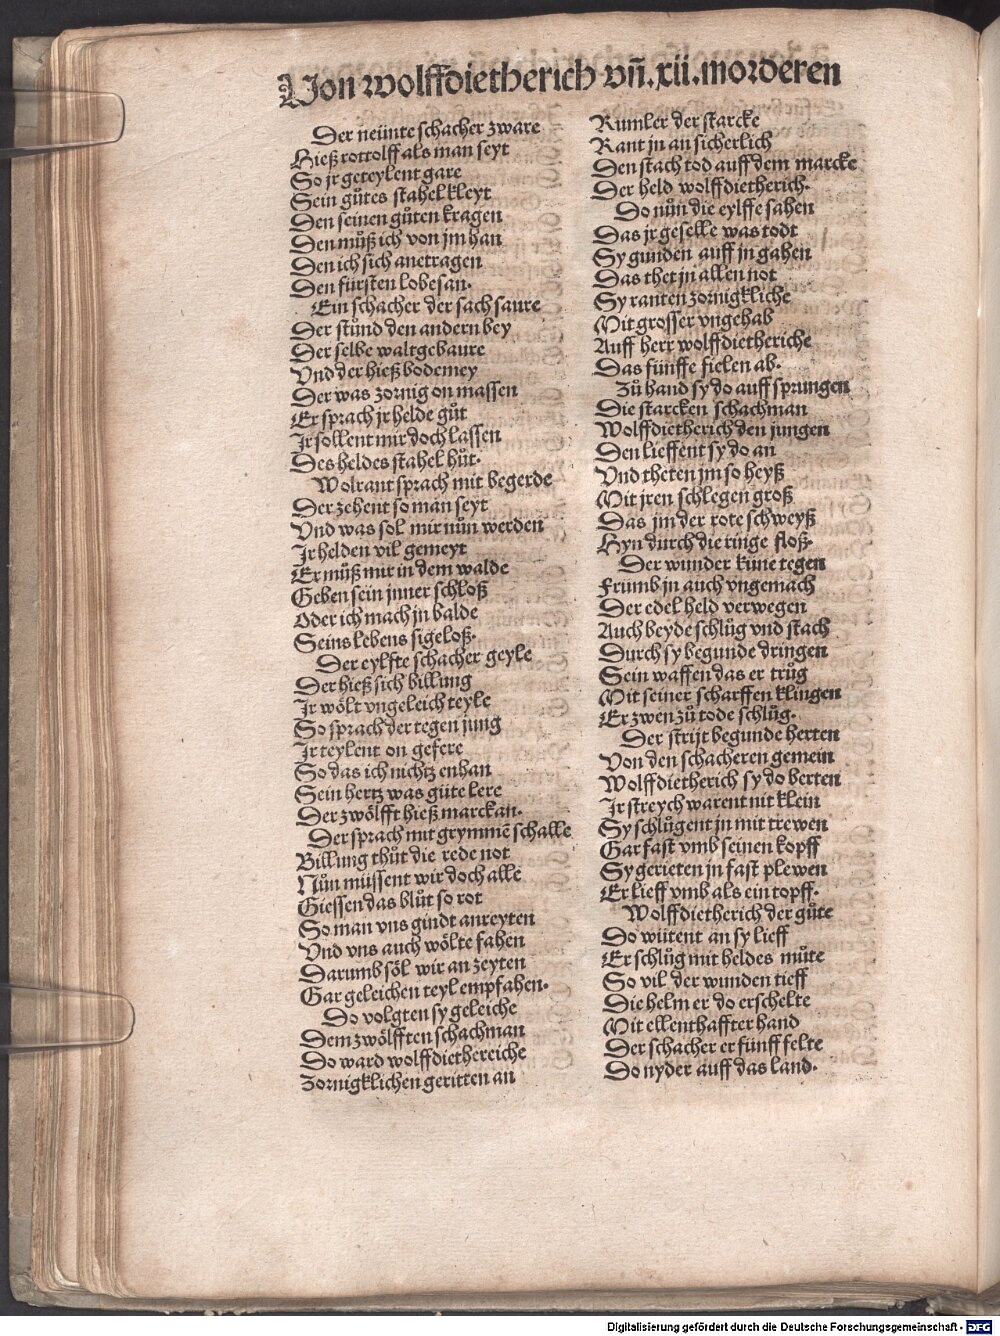 Von wolffdietherich vñ .xii. morderen
Der neünte schacher zware
Hieß rottolff als man seyt
So jr geteylent gare
Sein gůtes stahel kleyt
Den seinen gůten kragen
Den můß ich von jm han
Den ich sich anetragen
Den fürsten lobesan.
Ein schacher der sach saure
Der stůnd den andern bey
Der selbe waltgebaure
Vnd der hieß bodemey
Der was zornig on massen
Er sprach jr helde gůt
Jr sollent mir doch lassen
Des heldes stahel hůt.
Wolrant sprach mit begerde
Der zehent so man seyt
Vnd was sol mir nůn werden
Jr helden vil gemeyt
Er můß mir in dem walde
Geben sein jnner schloß
Oder ich mach jn balde
Seins lebens sigeloß.
Der eylfte schacher geyle
Der hieß sich billung
Jr wölt vngeleich teyle
So sprach der tegen jung
Jr teylent on gefere
So das ich nichtz enhan
Sein hertz was gůte lere
Der zwölfft hieß marckan.
Der sprach mit grymmē schalle
Billung thůt die rede not
Nůn müssent wir doch alle
Giessen das blůt so rot
So man vns gindt anreyten
Vnd vns auch wölte fahen
Darumb söl wir an zeyten
Gar geleichen teyl empfahen.
Do volgten sy geleiche
Dem zwölfften schachman
Do ward wolffdiethereiche
Zornigklichen geritten an
Rumler der starcke
Rant jn an sicherlich
Den stach tod auff dem marcke
Der held wolffdietherich.
Do nůn die eylffe sahen
Das jr geselle was todt
Sy gunden auff jn gahen
Das thet jn allen not
Sy ranten zornigkliche
Mit grosser vngehab
Auff herr wolffdietheriche
Das fünffe fielen ab.
Zů hand sy do auff sprungen
Die starcken schachman
Wolffdietherich den jungen
Den lieffent sy do an
Vnd theten jm so heyß
Mit jren schlegen groß
Das jm der rote schweyß
Hyn durch die ringe floß.
Der wunder küne tegen
Frumb jn auch vngemach
Der edel held verwegen
Auch beyde schlůg vnd stach
Durch sy begunde dringen
Sein waffen das er trůg
Mit seiner scharffen klingen
Er zwen zů tode schlůg.
Der strijt begunde herten
Von den schacheren gemein
Wolffdietherich sy do berten
Jr streych warent nit klein
Sy schlůgent jn mit trewen
Gar fast vmb seinen kopff
Sy gerieten jn fast plewen
Er lieff vmb als ein topff.
Wolffdietherich der gůte
Do wütent an sy lieff
Er schlůg mit heldes můte
So vil der wunden tieff
Die helm er do erschelte
Mit ellenthaffter hand
Der schacher er fünff felte
Do nyder auff das land.
Digitalisierung gefördert durch die Deutsche Forschungsgemeinschaft - DFG